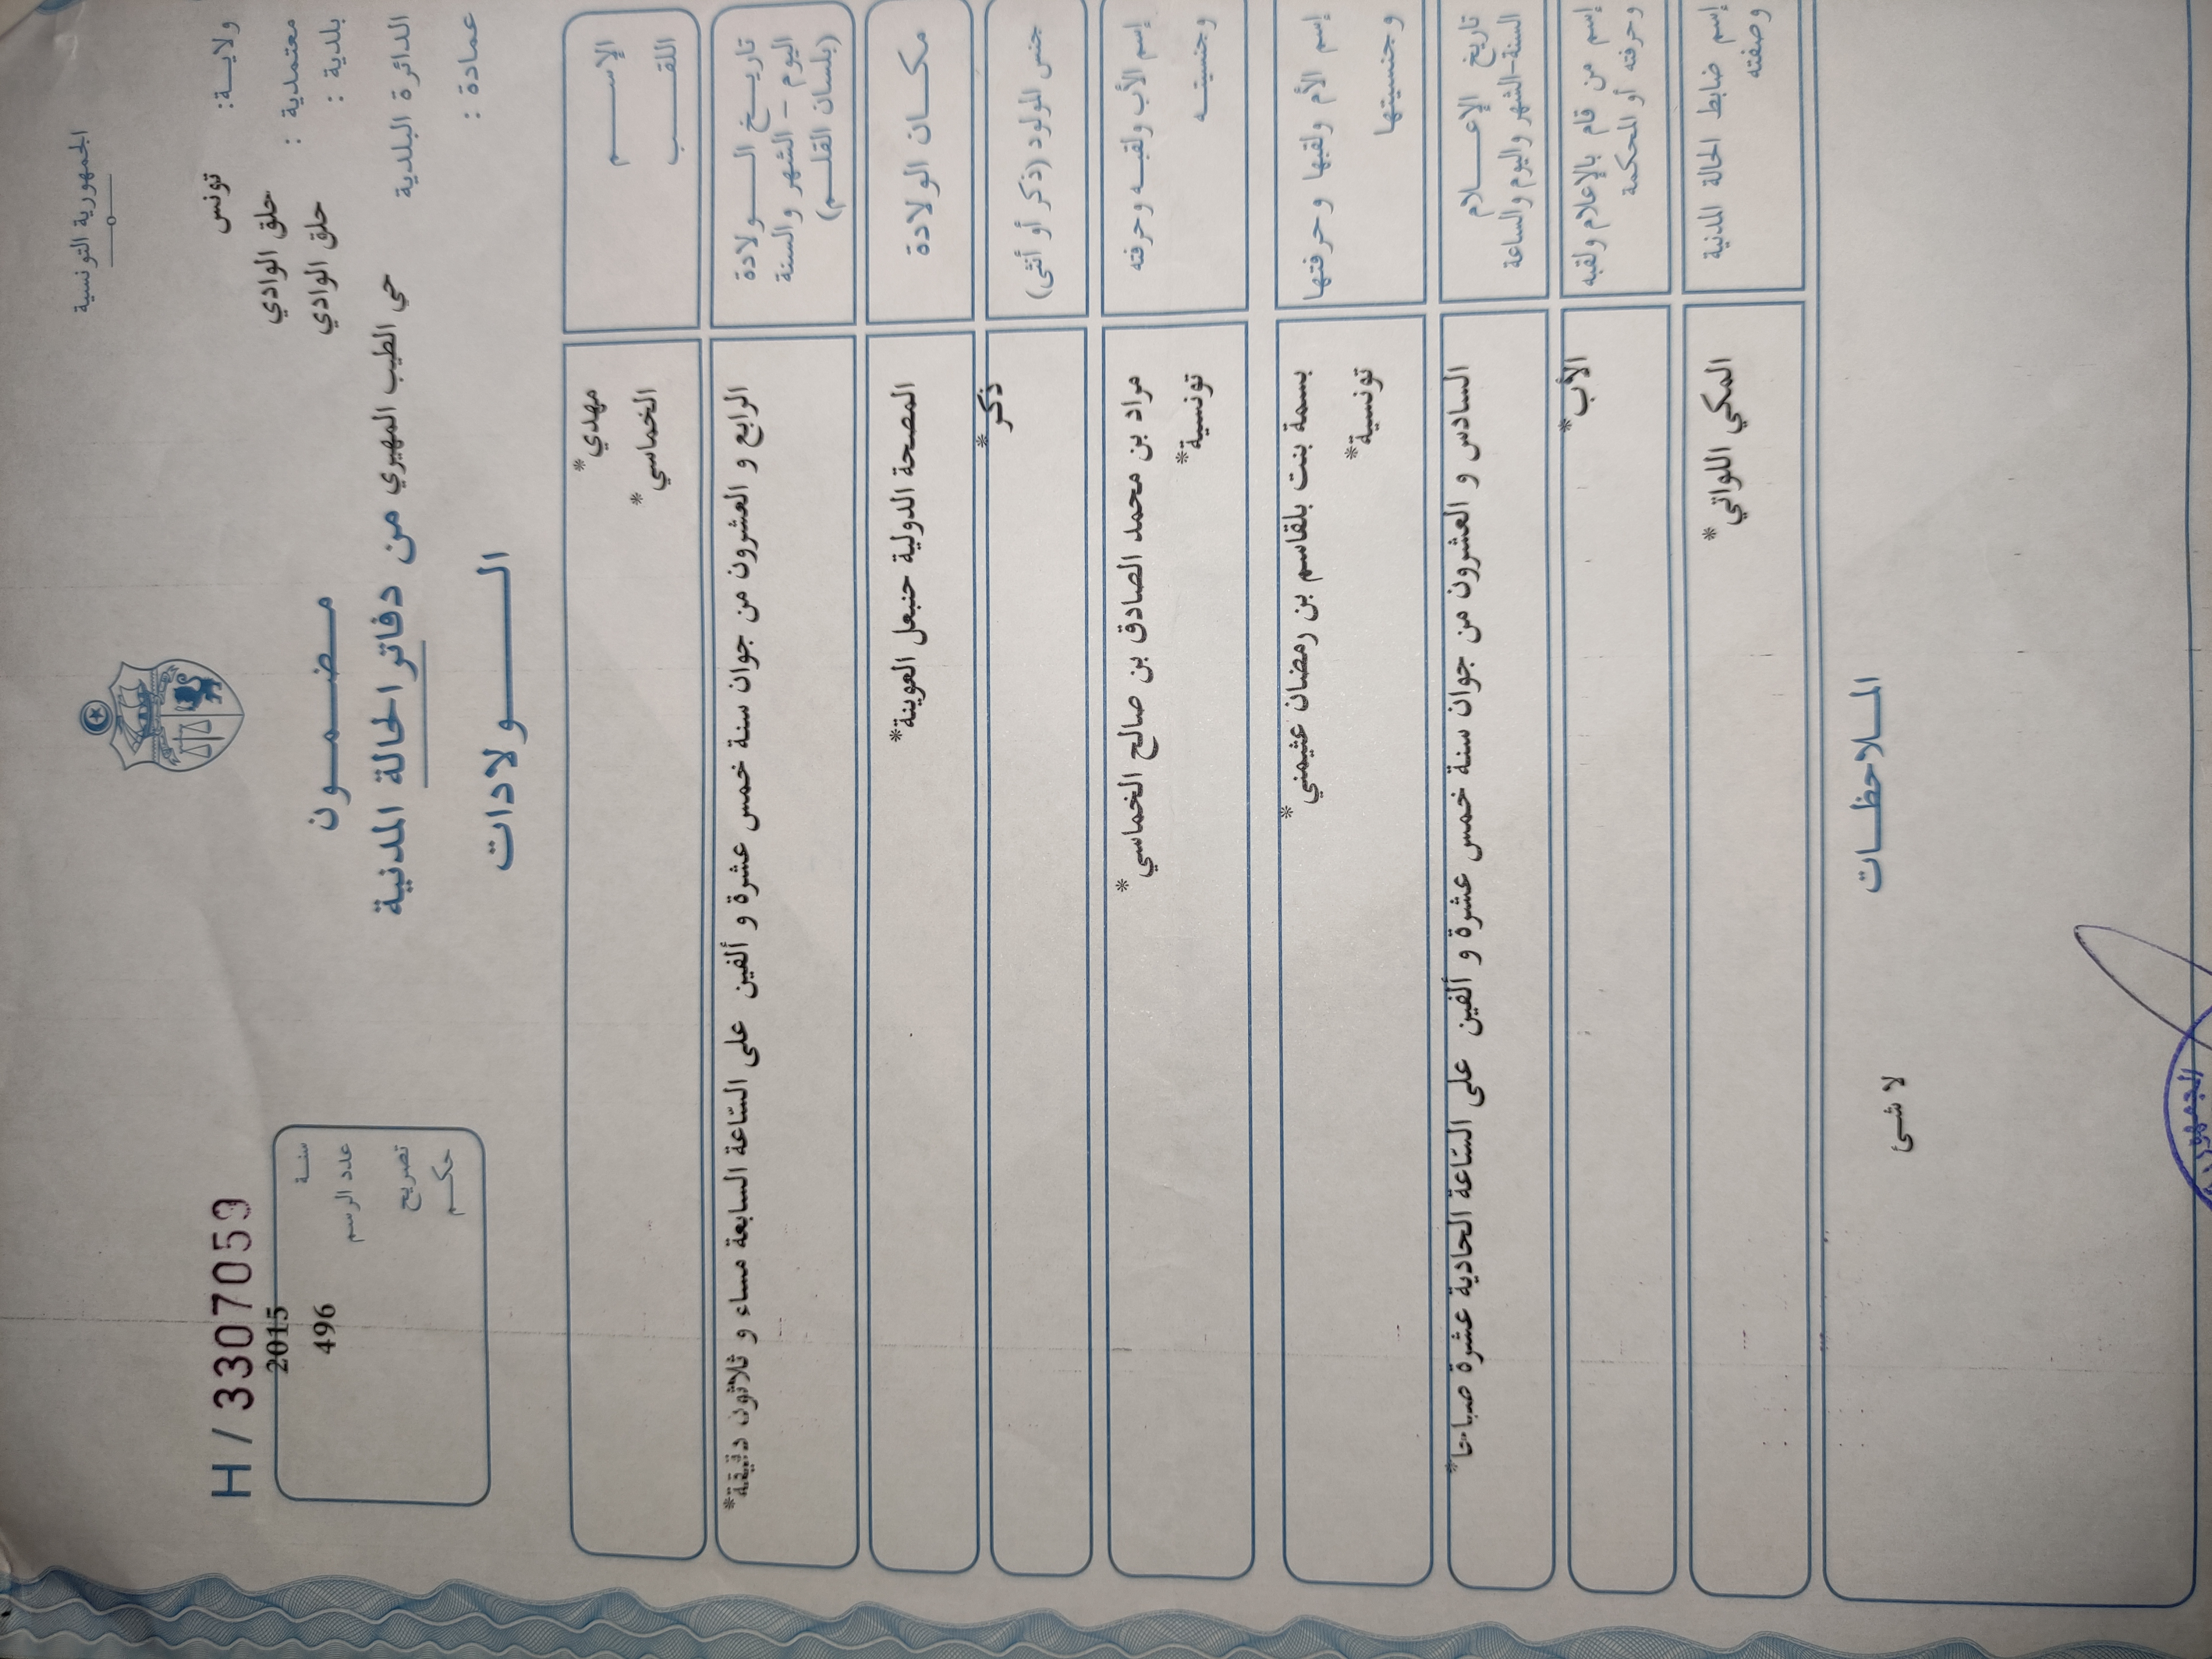 الجمهورية التونسية
ولايـــة: تونس
معتمدية : حلق الوادي
بلدية : حلق الوادي
الدائرة البلدية حي الطيب المهيري
عمادة :
مـــضـــمـــون
من دفاتر الحالة المدنية
الـــــولادات
H / 3307059
سنـــة 2015
عدد الرسم 496
تصريح
حكـــم
الإســـــم مهدي*
اللقـــــب الخماسي*
تاريـــخ الـــــولادة
اليوم - الشهر والسنة
(بلسان القلـــم)
الرابع و العشرون من جوان سنة خمس عشرة و ألفين على السّاعة السابعة مساء و ثلاثون دقيقة*
مكـــان الولادة المصحة الدولية حنبعل العوينة*
جنس المولود (ذكر أو أنثى) ذكر*
إسم الأب ولقبـــه وحرفته مراد بن محمد الصادق بن صالح الخماسي*
وجنسيتـــه تونسية*
إسم الأم ولقبها وحرفتها بسمة بنت بلقاسم بن رمضان عثيمني*
وجنسيتها تونسية*
تاريخ الإعـــــلام
السنة-الشهر واليوم والساعة
السادس و العشرون من جوان سنة خمس عشرة و ألفين على السّاعة الحادية عشرة صباحا*
إسم من قام بالإعلام ولقبه الأب*
وحرفته أو المحكمة
إسم ضابط الحالة المدنية المكي اللواتي*
وصفته
المـــلاحظـــات
لا شئ